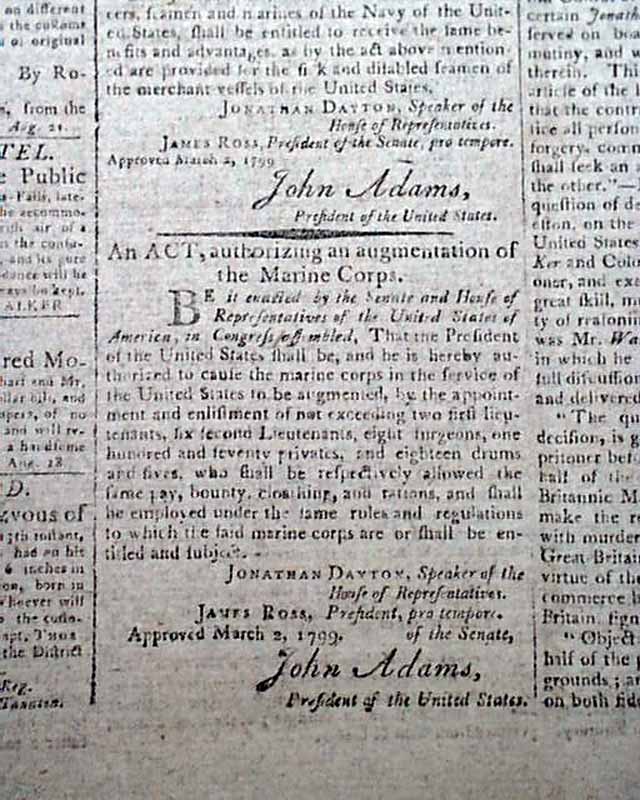 on different
the cuſtoms
original
By Ro-
from the
Aug. 21.
TEL.
e Public
Falls, late-
he accommo-
air of a
the conſu-
and its pure
dance will be
be kept.
ALKER
red Mo-
and Mr.
of no
and will re-
a handſome
Aug. 28
D.
vous of
inſtant,
had on his
6 inches in
born in
Whoever will
the cuſto-
Thos
the Diſtrict
Reg.
Taunton.
cers, ſeamen and marines of the Navy of the Unit-
ed States, ſhall be entitled to receive the ſame be-
nefits and advantages, as by the act above mention-
ed are provided for the ſick and diſabled ſeamen of
the merchant veſſels of the United States.
JONATHAN DAYTON, Speaker of the
Houſe of Repreſentatives.
JAMES ROSS, Preſident of the Senate, pro tempore.
Approved March 2, 1799
John Adams,
Preſident of the United States.
An ACT, authorizing an augmentation of
the Marine Corps.
BE it enacted by the Senate and Houſe of
Repreſentatives of the United States of
America, in Congreſs aſſembled, That the Preſident
of the United States ſhall be, and he is hereby au-
thorized to cauſe the marine corps in the ſervice of
the United States to be augmented, by the appoint-
ment and enliſtment of not exceeding two firſt lieu-
tenants, ſix ſecond Lieutenants, eight ſurgeons, one
hundred and ſeventy privates, and eighteen drums
and fifes, who ſhall be reſpectively allowed the
ſame pay, bounty, cloathing, and rations, and ſhall
be employed under the ſame rules and regulations
to which the ſaid marine corps are or ſhall be en-
titled and ſubject.
JONATHAN DAYTON, Speaker of the
Houſe of Repreſentatives.
JAMES ROSS, Preſident, pro tempore.
Approved March 2, 1799. of the Senate,
John Adams,
Preſident of the United States.
certain Jonath
ſerved on boa
mutiny, and w
therein. Thi
article of the
that the contr
tice all perſon
forgery, comm
ſhall ſeek an a
the other."—
queſtion of de
on the
United States
Ker and Colo
oner, and exe
great ſkill, m
ty of reaſonin
was Mr. Wa
in which he
full diſcuſſion
and delivered
"The qu
deciſion, is g
priſoner befo
half of the
Britannic M
make the re
with murder
Great Britain
virtue of the
commerce b
Britain, ſign
"Object
half of the
grounds; an
on both ſide